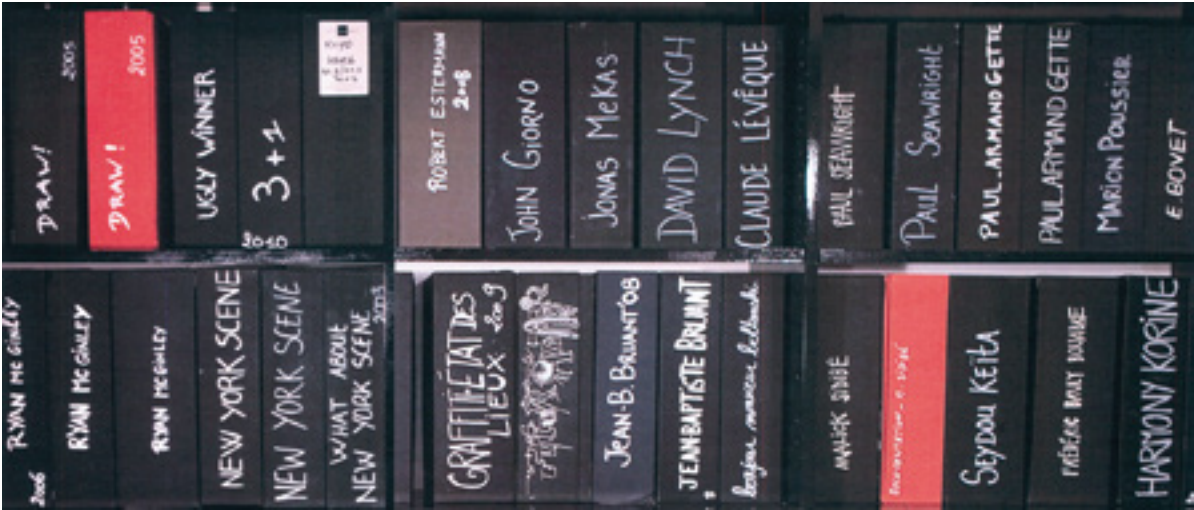 DRAW!
2005
DRAW!
2005
UGLY WINNER
3+1
2010
ROBERT ESTERMANN
2008
JOHN GIORNO
JONAS MEKAS
DAVID LYNCH
CLAUDE LÉVÊQUE
PAUL SEAWRIGHT
PAUL SEAWRIGHT
PAUL.ARMAND GETTE
PAUL.ARMAND GETTE
MARION POUSSIER
E.BOVET
RYAN MC GINLEY
2006
RYAN MC GINLEY
RYAN MCGINLEY
NEW YORK SCENE
NEW YORK SCENE
WHAT ABOUT
NEW YORK SCENE
GRAFFITI ÉTAT DES
LIEUX - 2009
JEAN-B. BRUANT'08
JEAN BAPTISTE BRUANT
MALICK SIDIBÉ
SEYDOU KEITA
HARMONY KORINE